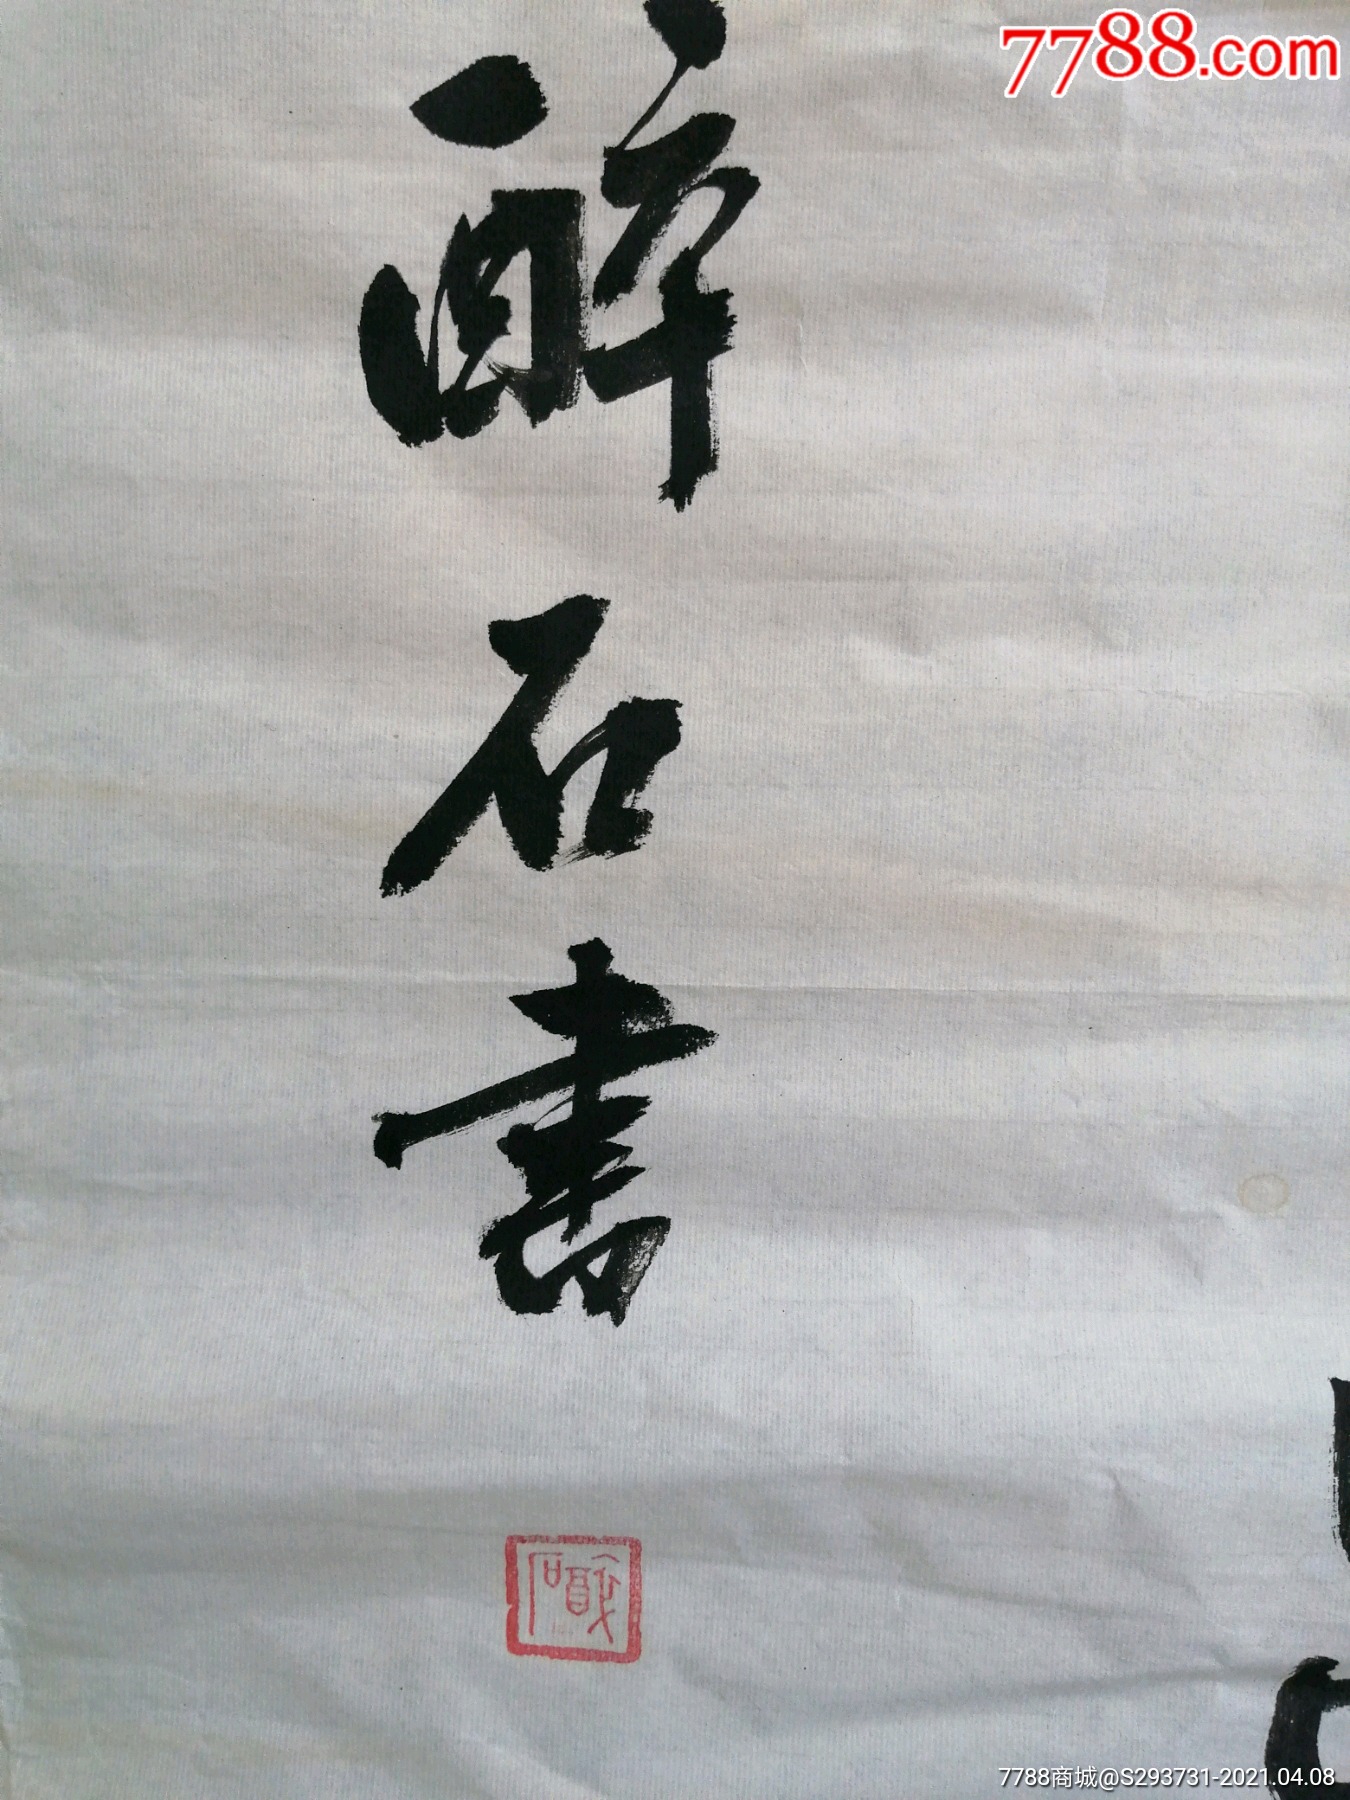 7788.com
醉石書
7788商城@S293731-2021.04.08